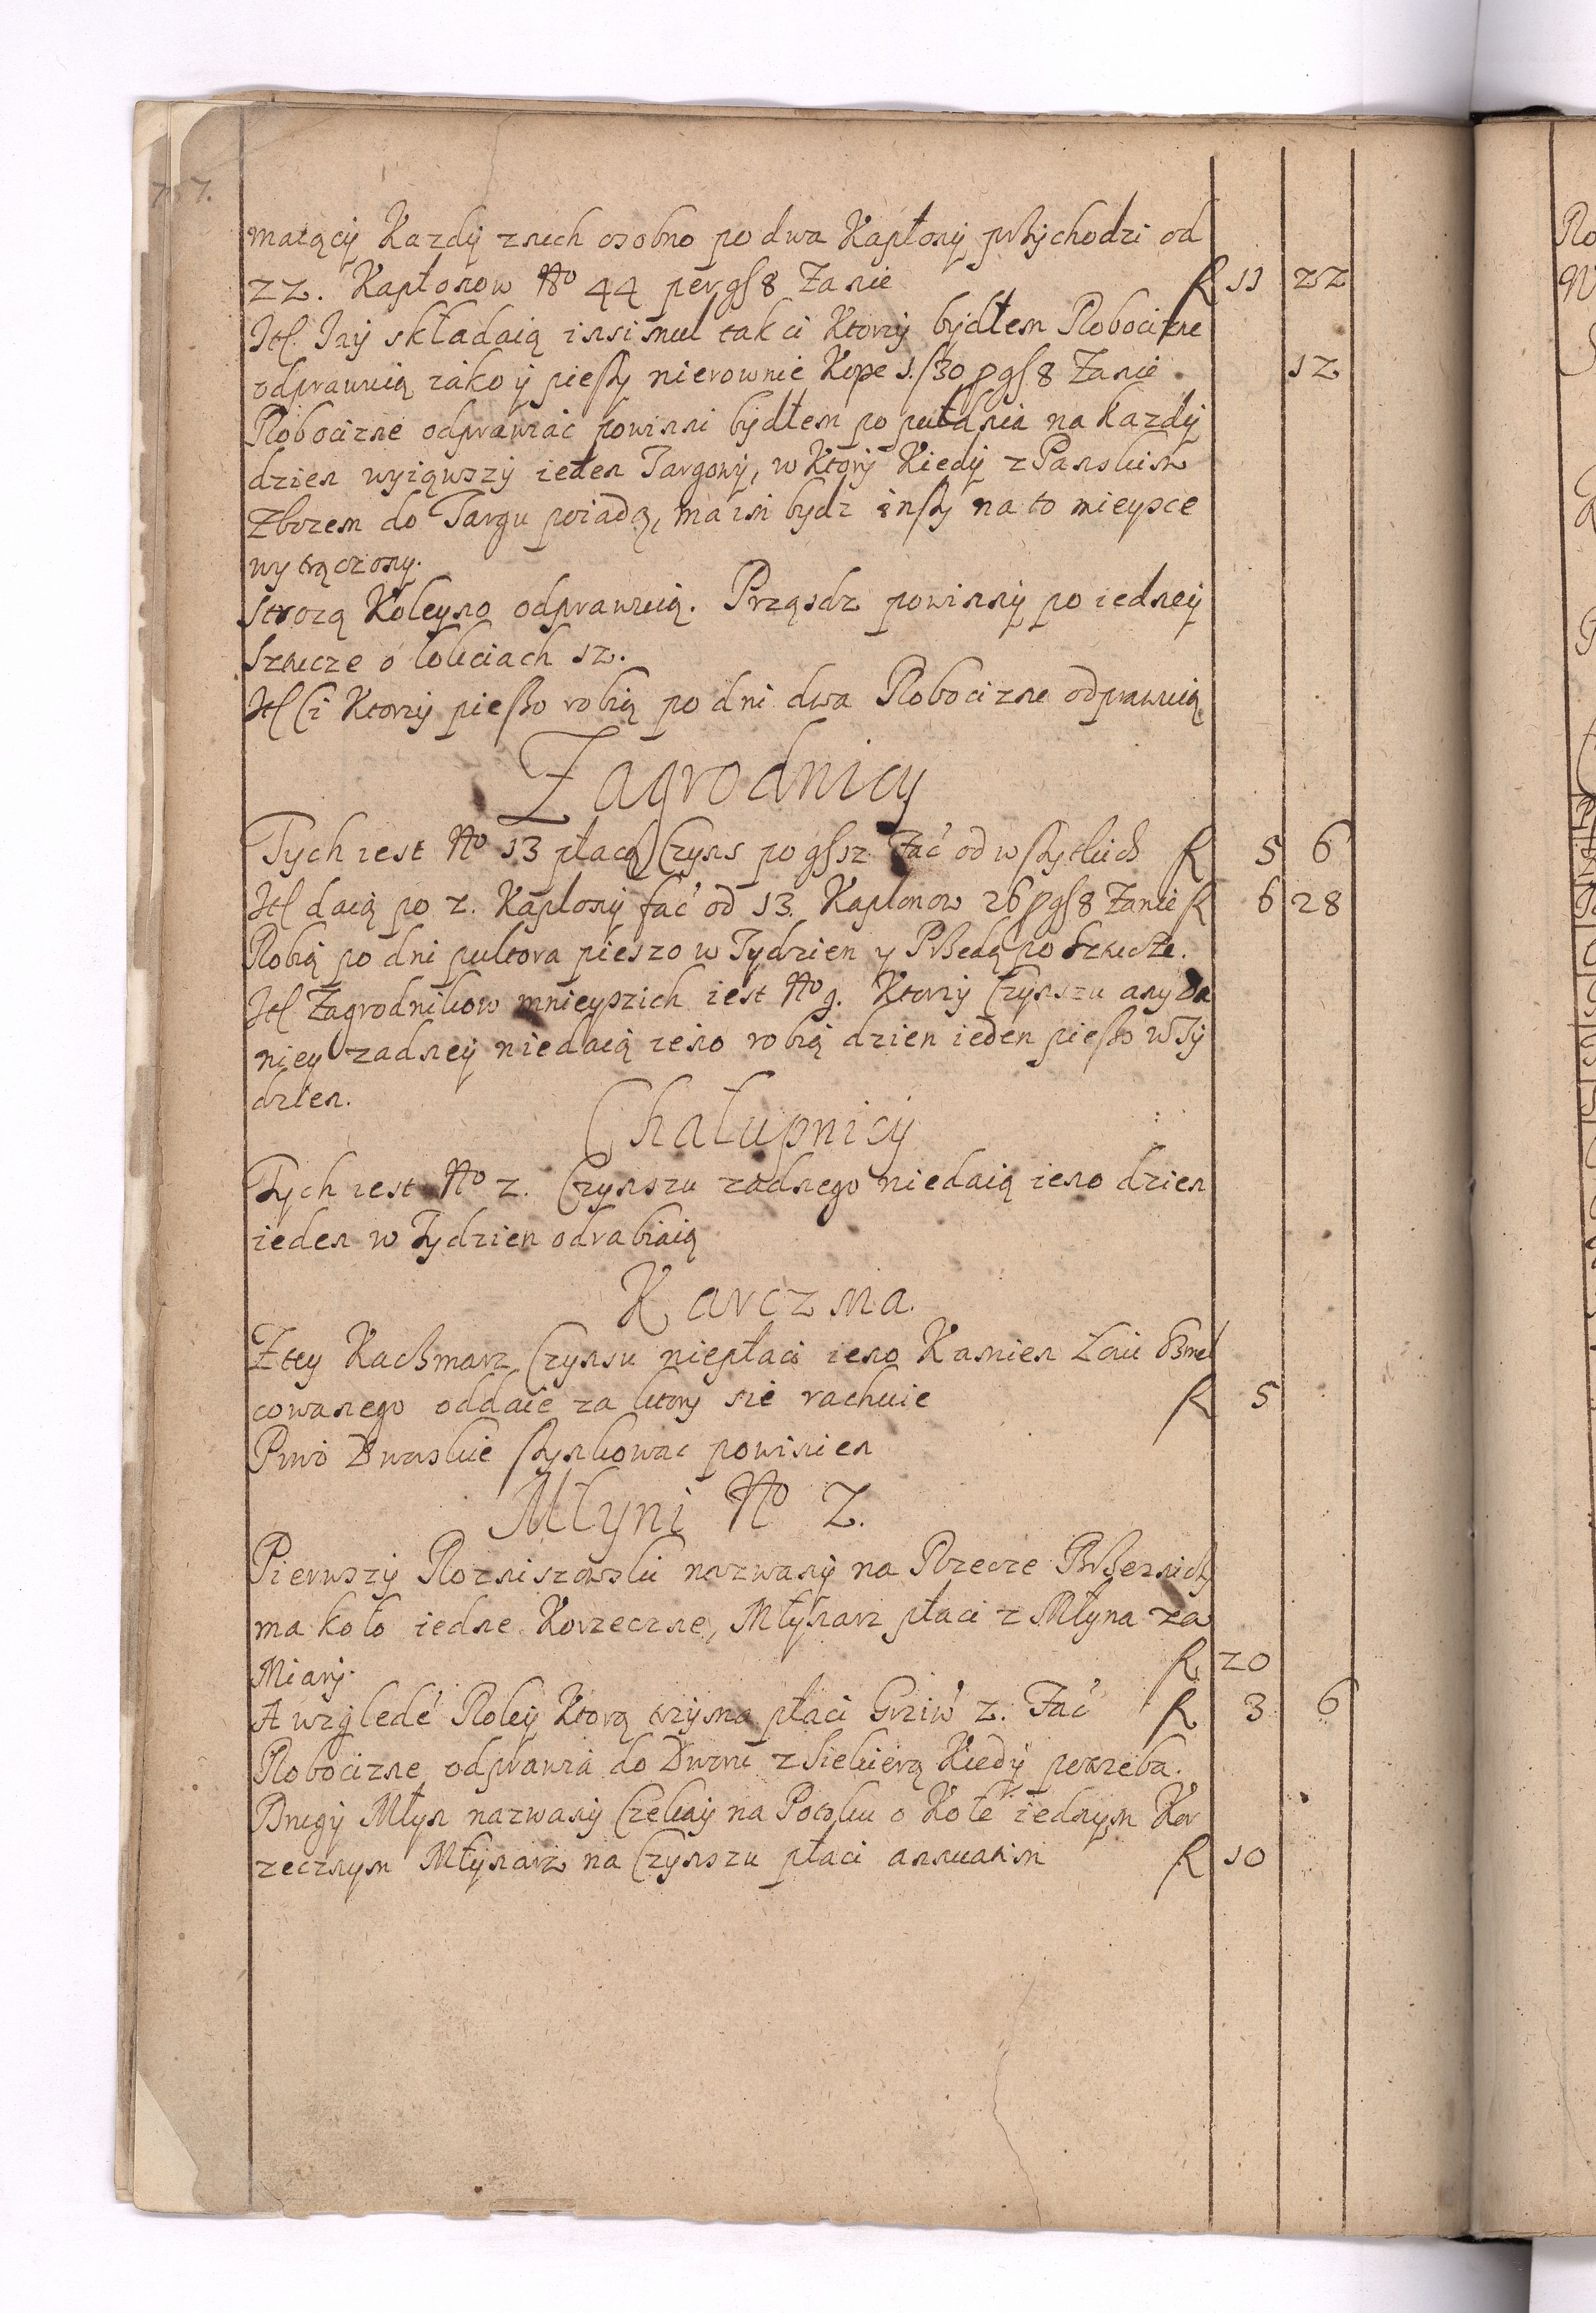 maiącÿ Kazdÿ znich osobno po dwa Kapłonÿ prßÿchodzi od
22. Kapłonow No 44 per gſ 8 Facie ꝭ 11 22
Itl. Iaÿ składaią insimul tak ci Ktorzÿ bÿdłem Robocizne
odprawuią iako ÿ pießÿ nierownie Kope 1. ſ30 p gſ 8 Facie 12
Robocizne odprawiać powinni bÿdłem po pułdnia na kazdÿ
dzien wyiąwszÿ ieden Targowÿ, w Ktorÿ Kiedÿ z Panskim
Zbozem do Targu poiadą, ma im bÿdz inßÿ na to mieysce
wytrączony.
Strozą Koleyno odprawuią. Prząsdz powinnÿ po iedneÿ
Sztucze o łokciach 12.
Itl Ci Ktorzÿ pießo robią po dni dwa Robocizne odprawuią
Zagrodnicÿ
Tych iest No 13 płacą Czyns po gſ 12 Fać od wßytkich ꝭ 5 6
Itl daią po 2. Kapłonÿ fać od 13. Kapłonow 26 p gſ 8 Facie ꝭ 6 28
Robią po dni pułtora pieszo w Tydzien y Prßedą po Sztucze.
Itl Zagrodnikow mnieyszich iest No 9. Ktorzÿ Czynszu any Da
niey zadneÿ niedaią ieno robią dzien ieden pießo w Tÿ
dzien.
Chałupnicÿ
Tych iest No 2. Czynszu zadnego niedaią ieno dzien
ieden w Tydzien odrabiaią
Karczma.
Z tey Kaczmarz Czynsu niepłaci ieno Kamien Łoiu ßmel
cowanego oddaie za ktory sie rachuie ꝭ 5
Piwo Dworskie ßynkowac powinien
Młyni No 2.
Pierwszÿ Rozniszowski nazwanÿ na Rzecze
ma koło iedne Korzeczne, Młynarz płaci z Młyna za
Miarÿ. ꝭ 20
A względe Roleÿ Ktorą trzyma płaci Grziw 2. Fać ꝭ 3 6
Robocizne odprawia do Dworu z Siekierą Kiedÿ potrzeba.
Drugÿ Młyn nazwanÿ Czekaÿ na Potoku o Kole iednym Kor
zecznym Młynarz na Czynszu płaci annuatim ꝭ 10